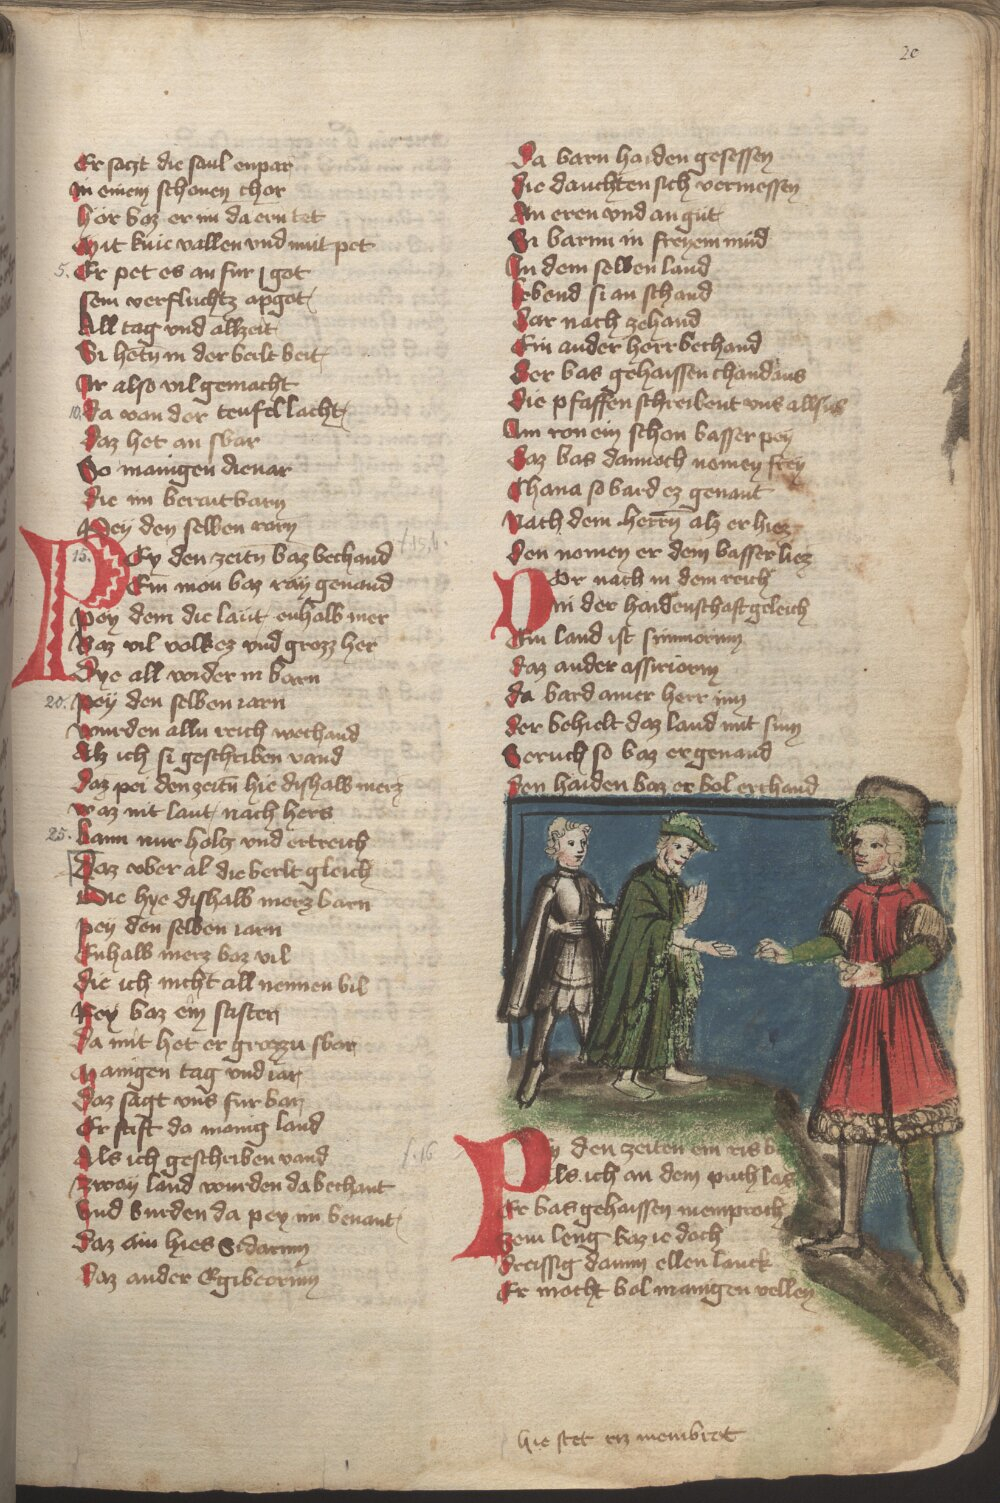 20
Er saczt die saul enpar
In einem schonen chor
hor waz er im da ern tet
Mit knie vallen vnd mit pet
5. Er pet es an fur got
sein verfluchtz apgot
All tag vnd allzeit
Si hetn in der werlt weit
Ir also vil gemacht
10. Da von der teufel lacht
Daz het an swar
So manigen dienar
die im berait warn
Pey den selben iarn
15. Pey den zeitn waz bechand
Ein man waz ray genand
pey dem die laut enhalb mer
Waz vil volkez vnd grozz her
Dye all wider in warn
20. pey den selben iarn
wurden allu reich wechand
Alz ich si geschriben vand
Daz pei den zeitn hie dishalb merz
waz nit laut nach hers
25. Wann nur holcz vnd ertreich
Daz vber al die werlt gleich
Die hye dishalb merz warn
pey den selben iarn
Enhalb merz waz vil
die ich nicht all nennen wil
Rey waz ein stifter
Da mit het er grozzu swar
Manigen tag vnd iar
Daz sagt vns fur war
Er stift da manig land
Als ich geschriben vand
Zway land wurden da bechant
Vnd wurden da pey im benant
Daz ain hies Sidarum
Daz ander Egibeorum
Da warn haiden gesessen
die dauchten sich vermessen
An eren vnd an gut
Si warnn in freyem mud
In dem selben land
lebend si an schand
Dar nach zehand
Ein ander herr bechand
der was gehaissen chandaus
die pfaffen schreibent vns allsus
Am ron ein schon wasser pey
Daz was dannoch nomen frey
Chana so ward ez genant
Nach dem herrn alz er hiez
den nomen er dem wasser liez
Dor nach in dem reich
in der haidenschaft geleich
Ain land ist
daz ander assiriorum
da ward ainer herr inn
der behielt daz land mit sinn
Seruch so waz er genand
Den haiden waz er wol erchand
f. 15b.
f. 16
Py den zeiten ein ris
Als ich an dem puch las
Er was gehaissen memproth
Sein leng waz ie doch
dreissig dannn ellen lanck
Er mocht wol manigen vellen
hie stet ris membrot